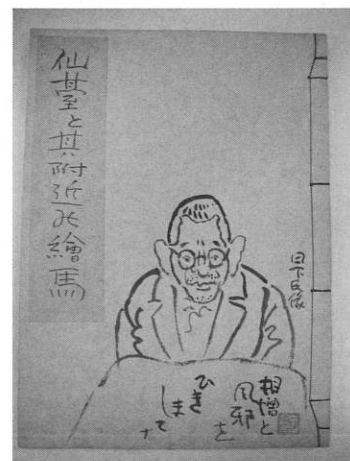 仙臺と其附近の繪馬
日下氏像
相憎と
風邪を
ひき
まして